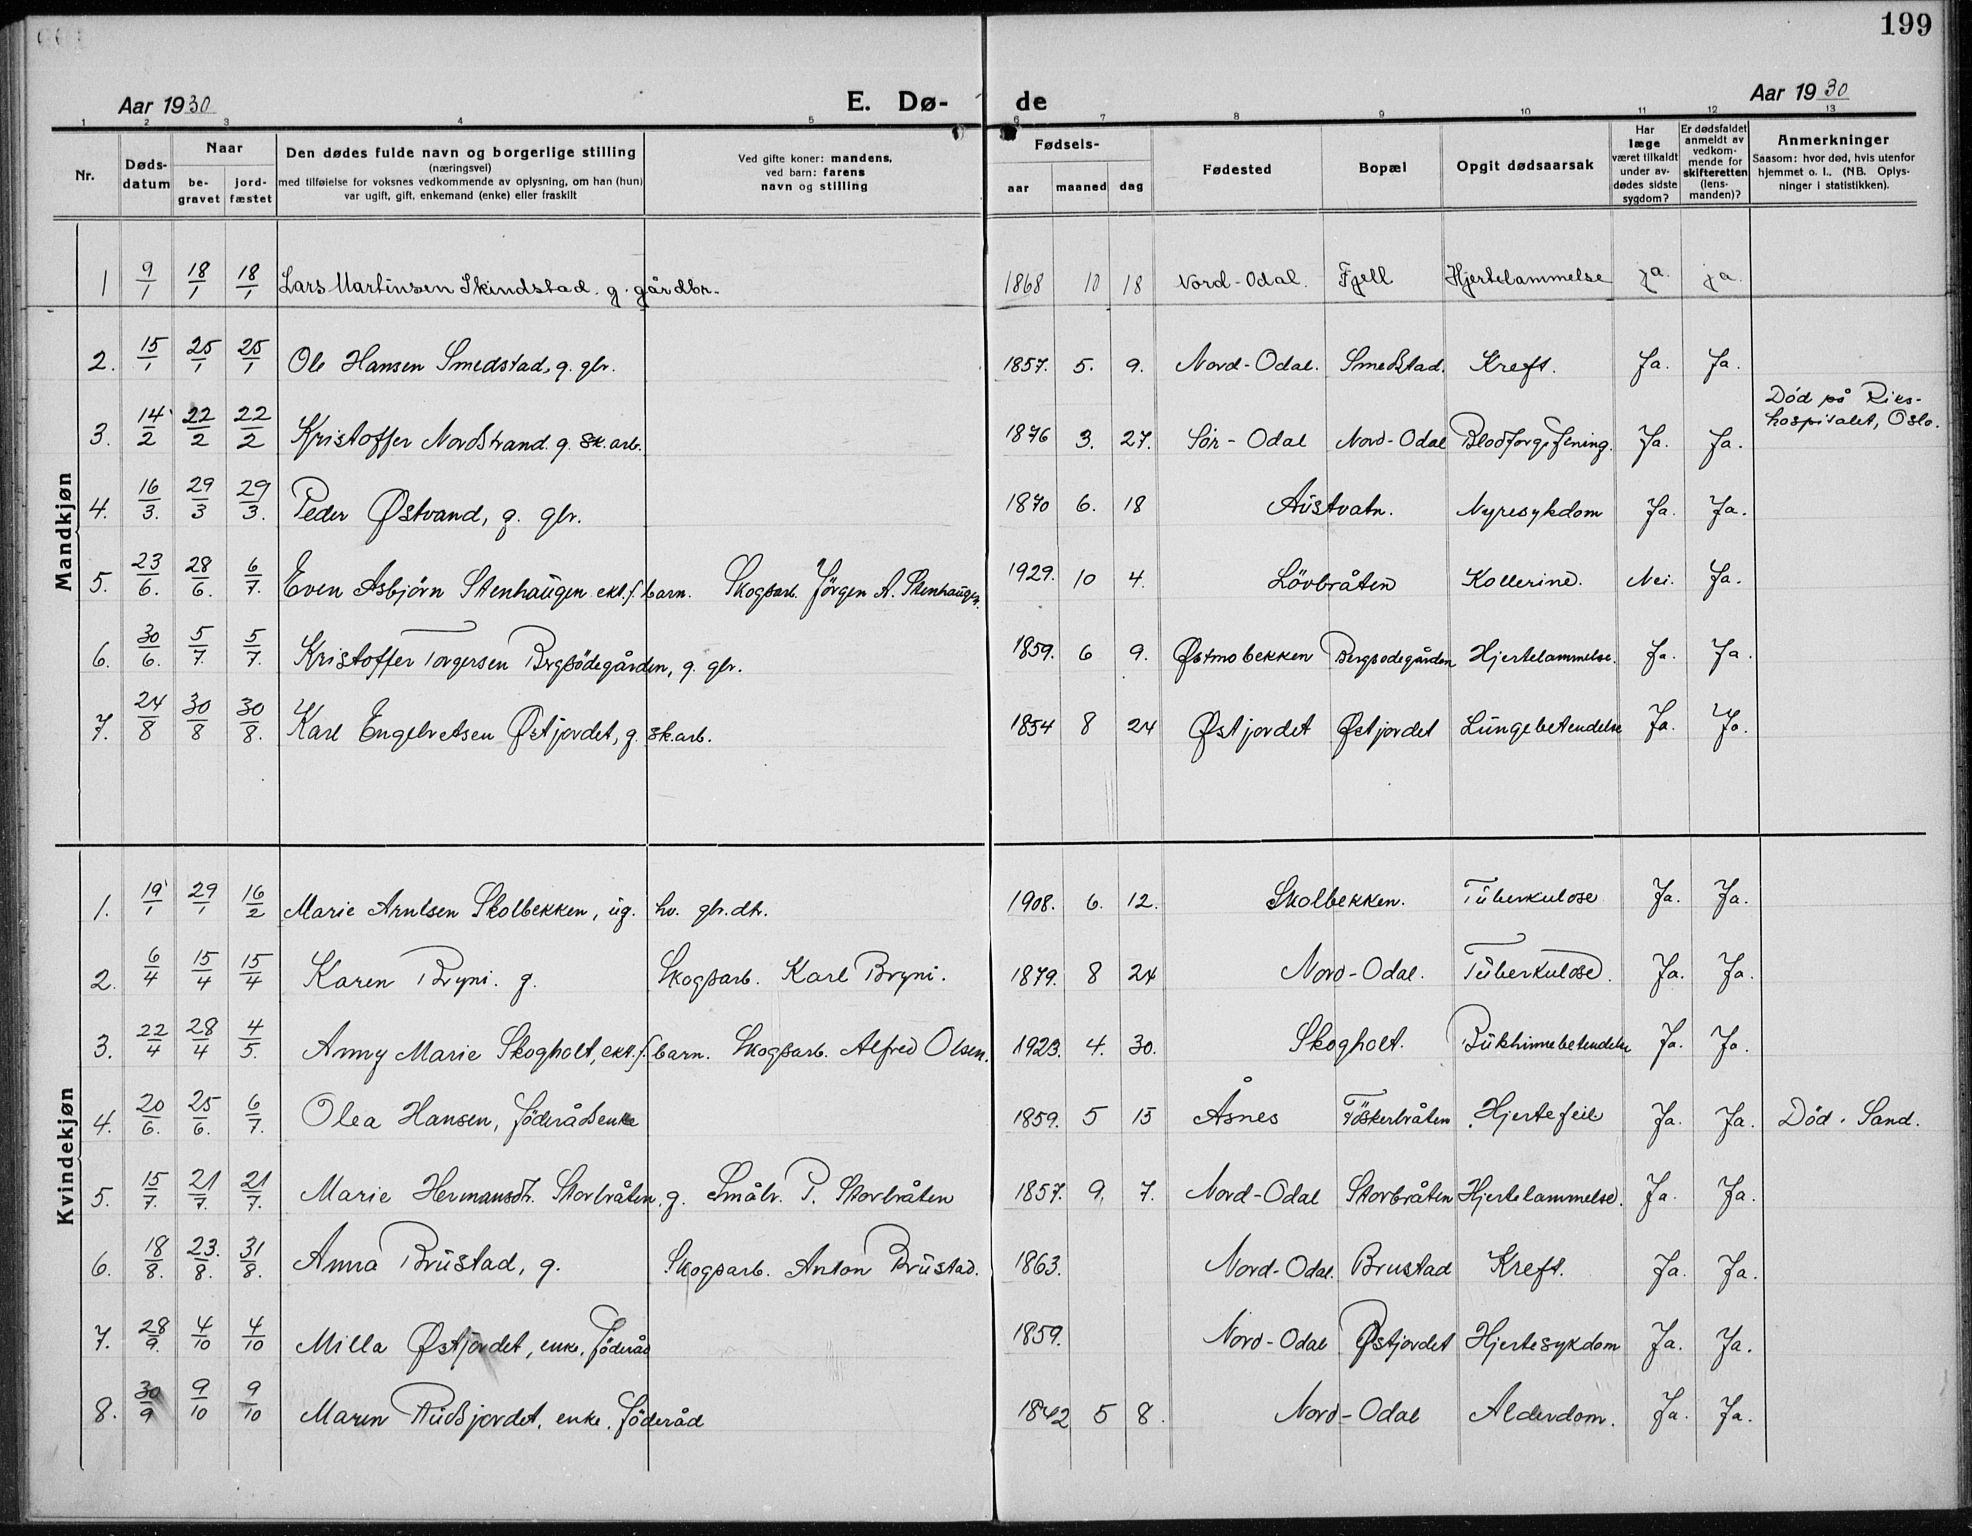 199
Aar 1930
E. Dø-
de
Aar 1930
1 2 3 4 5 6 7 8 9 10 11 12 13
Nr.
Døds-
datum
Naar
be-
gravet
jord-
fæstet
Den dødes fulde navn og borgerlige stilling
(næringsvei)
med tilføielse for voksnes vedkommende av oplysning, om han (hun)
var ugift, gift, enkemand (enke) eller fraskilt
Ved gifte koner: mandens,
ved barn: farens
navn og stilling
Fødsels-
aar maaned dag
Fødested
Bopæl
Opgit dødsaarsak
Har
læge
været tilkaldt
under av-
dødes sidste
sygdom?
Er dødsfaldet
anmeldt av
vedkom-
mende for
skifteretten
(lens-
manden)?
Anmerkninger
Saasom: hvor død, hvis utenfor
hjemmet o. l., (NB. Oplys-
ninger i statistikken).
Mandkjøn
1 9/1 18/1 18/1 Lars Martinsen Skindstad. g. gårdbr. 1868 10 18 Nord-Odal. Fjell Hjertelammelse ja. ja.
2. 15/1 25/1 25/1 Ole Hansen Smedstad, g. gbr. 1857. 5. 9. Nord-Odal. Smedstad. Kreft. Ja. Ja.
3. 14/2 22/2 22/2 Kristoffer Nordstrand. g. sk.arb. 1876 3. 27. Sör-Odal Nord-Odal Blodforgiftning. Ja. Ja. Död på Riks-
hospitalet, Oslo.
4. 16/3. 29/3 29/3. Peder Østvand, g. gbr. 1870 6. 18 Austvatn. Nyresykdom Ja. Ja.
5. 23/6. 28/6. 6/7. Even Asbjørn Stenhaugen ekt.f. barn. Skogsarb. Jörgen A. Stenhaugen. 1929. 10 4. Lövbråten Kollerine. Nei. Ja.
6. 30/6. 5/7. 5/7. Kristoffer Torgersen Bergsödegården, g. gbr. 1859. 6 9. Østmobekken Bergsodegården Hjertelammelse. Ja. Ja.
7. 24/8 30/8 30/8. Karl Engebretsen Østjordet, g. sk.arb. 1854 8 24 Østjordet Østjordet Lungebetendelse Ja. Ja.
Kvindekjøn
1. 19/1 29/1 16/2 Marie Arntsen Skolbekken, ug. hv. gbr.dtr. 1908. 6. 12. Skolbekken. Tuberkulose Ja. Ja.
2. 6/4 15/4 15/4 Karen Bryni. g. Skogsarb. Karl Bryni. 1879. 8 24 Nord-Odal. Tuberkulose. Ja. Ja.
3. 22/4 28/4 4/5. Anny Marie Skogholt, ekt.f. barn. Skogsarb. Alfred Olsen. 1923. 4. 30. Skogholt. Bukhinnebetendelse Ja. Ja.
4. 20/6. 25/6. 6/7. Olea Hansen, föderådsenke 1859. 5 15 Åsnes Töskerbråten Hjertefeil Ja. Ja. Död i Sand.
5. 15/7. 21/7. 21/7. Marie Hermansdtr. Storbråten, g. Småbr. P. Storbråten 1857. 9. 7. Nord-Odal Storbråten Hjertelammelse. Ja. Ja.
6. 18/8. 23./8. 31/8. Anna Brustad, g. Skogsarb. Anton Brustad. 1863. Nord-Odal. Brustad Kreft. Ja. Ja.
7. 28/9. 4/10 4/10 Milla Østjordet, enke, föderåd 1859. Nord-Odal Østjordet Hjertesykdom Ja. Ja.
8. 30/9 9/10 9/10 Maren Audsjordet, enke, föderåd 1842 5 8. Nord-Odal Alderdom. Ja. Ja.